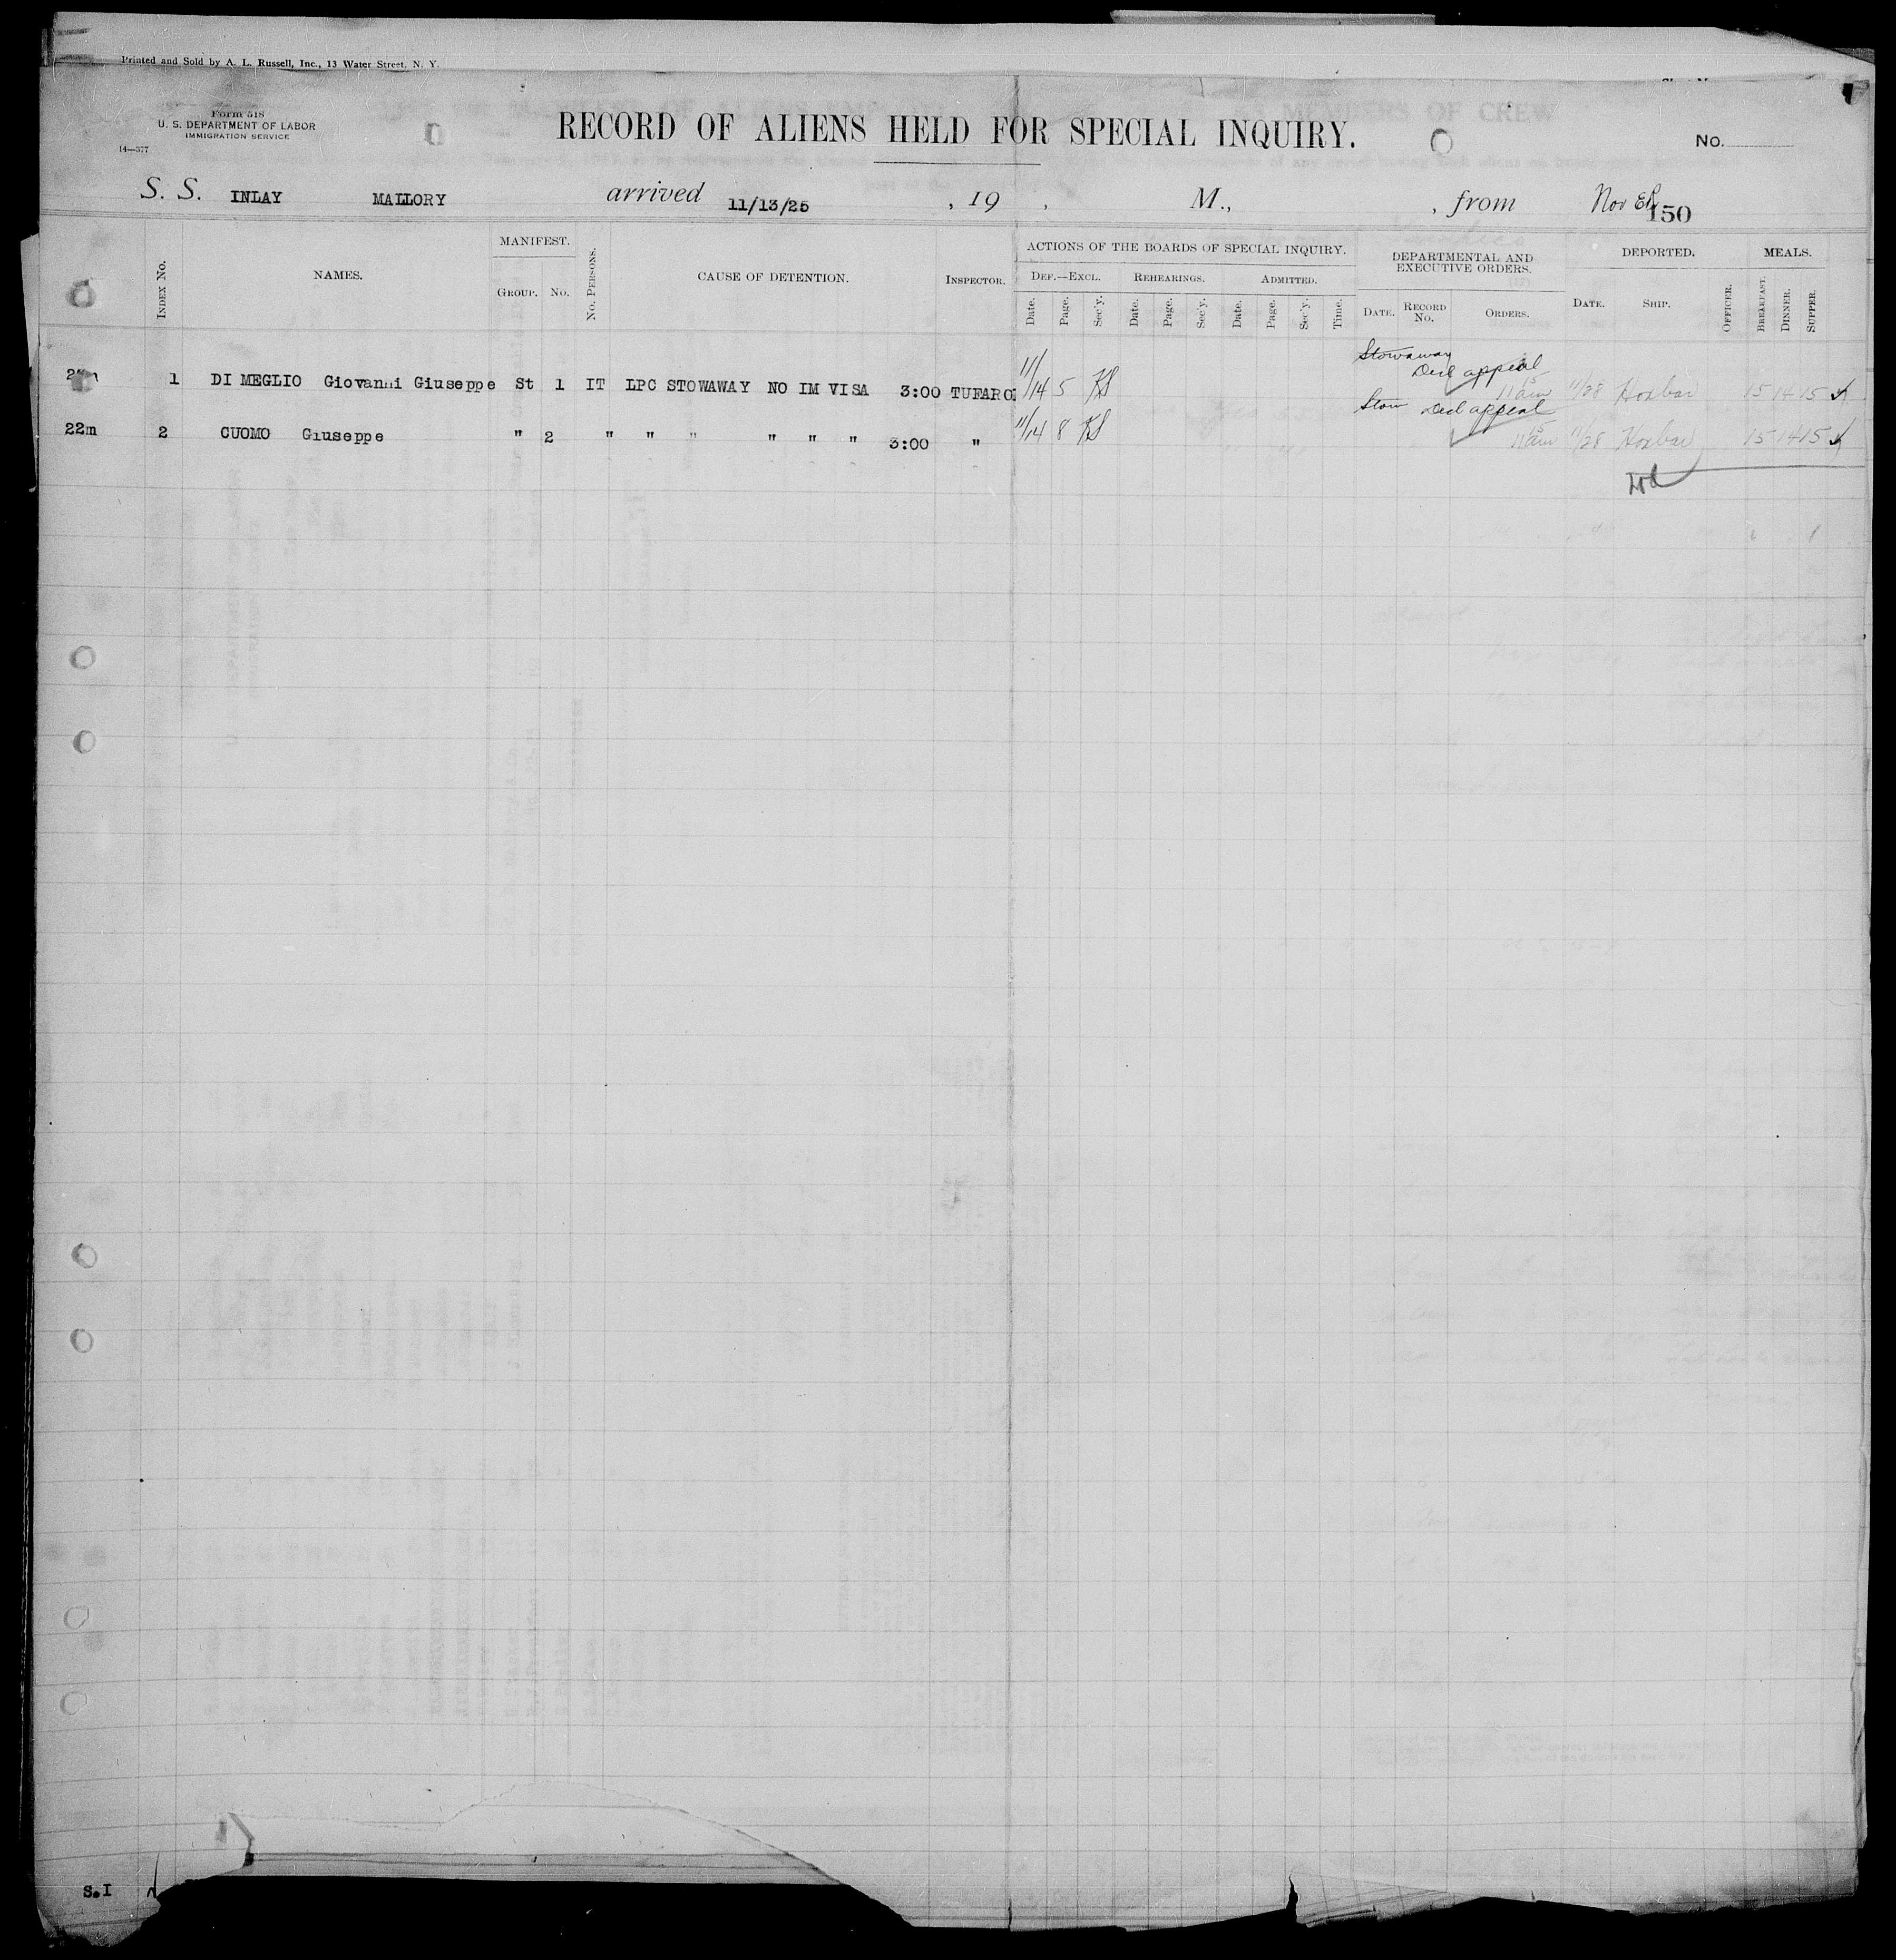 Printed and Sold by A. L. Russell, Inc., 13 Water Street, N. Y.
Form 518
U. S. DEPARTMENT OF LABOR
IMMIGRATION SERVICE
14—377
RECORD OF ALIENS HELD FOR SPECIAL INQUIRY.
No.
S. S. INLAY MALLORY arrived 11/13/25 , 19 , M., , from Nov
150
INDEX No. NAMES. MANIFEST. GROUP. No. No. PERSONS. CAUSE OF DETENTION. INSPECTOR. ACTIONS OF THE BOARDS OF SPECIAL INQUIRY. DEF.—EXCL. Date. Page. Sec'y. REHEARINGS. Date. Page. Sec'y. ADMITTED. Date. Page. Sec'y. Time. DEPARTMENTAL AND EXECUTIVE ORDERS. DATE. RECORD No. ORDERS. DEPORTED. DATE. SHIP. OFFICER. MEALS. BREAKFAST. DINNER. SUPPER.
Stowaway
Decl appeal
1 DI MEGLIO Giovanni Giuseppe St 1 IT LPC STOWAWAY NO IM VISA 3:00 TUFARO 11/14 5 KS 11am 11/28 Hoxbar 15 14 15
Stow Decl appeal
22m 2 CUOMO Giuseppe " 2 " " " " " " 3:00 " 11/14 8 KS 11am 11/28 Hoxbar 15 14 15
S.I